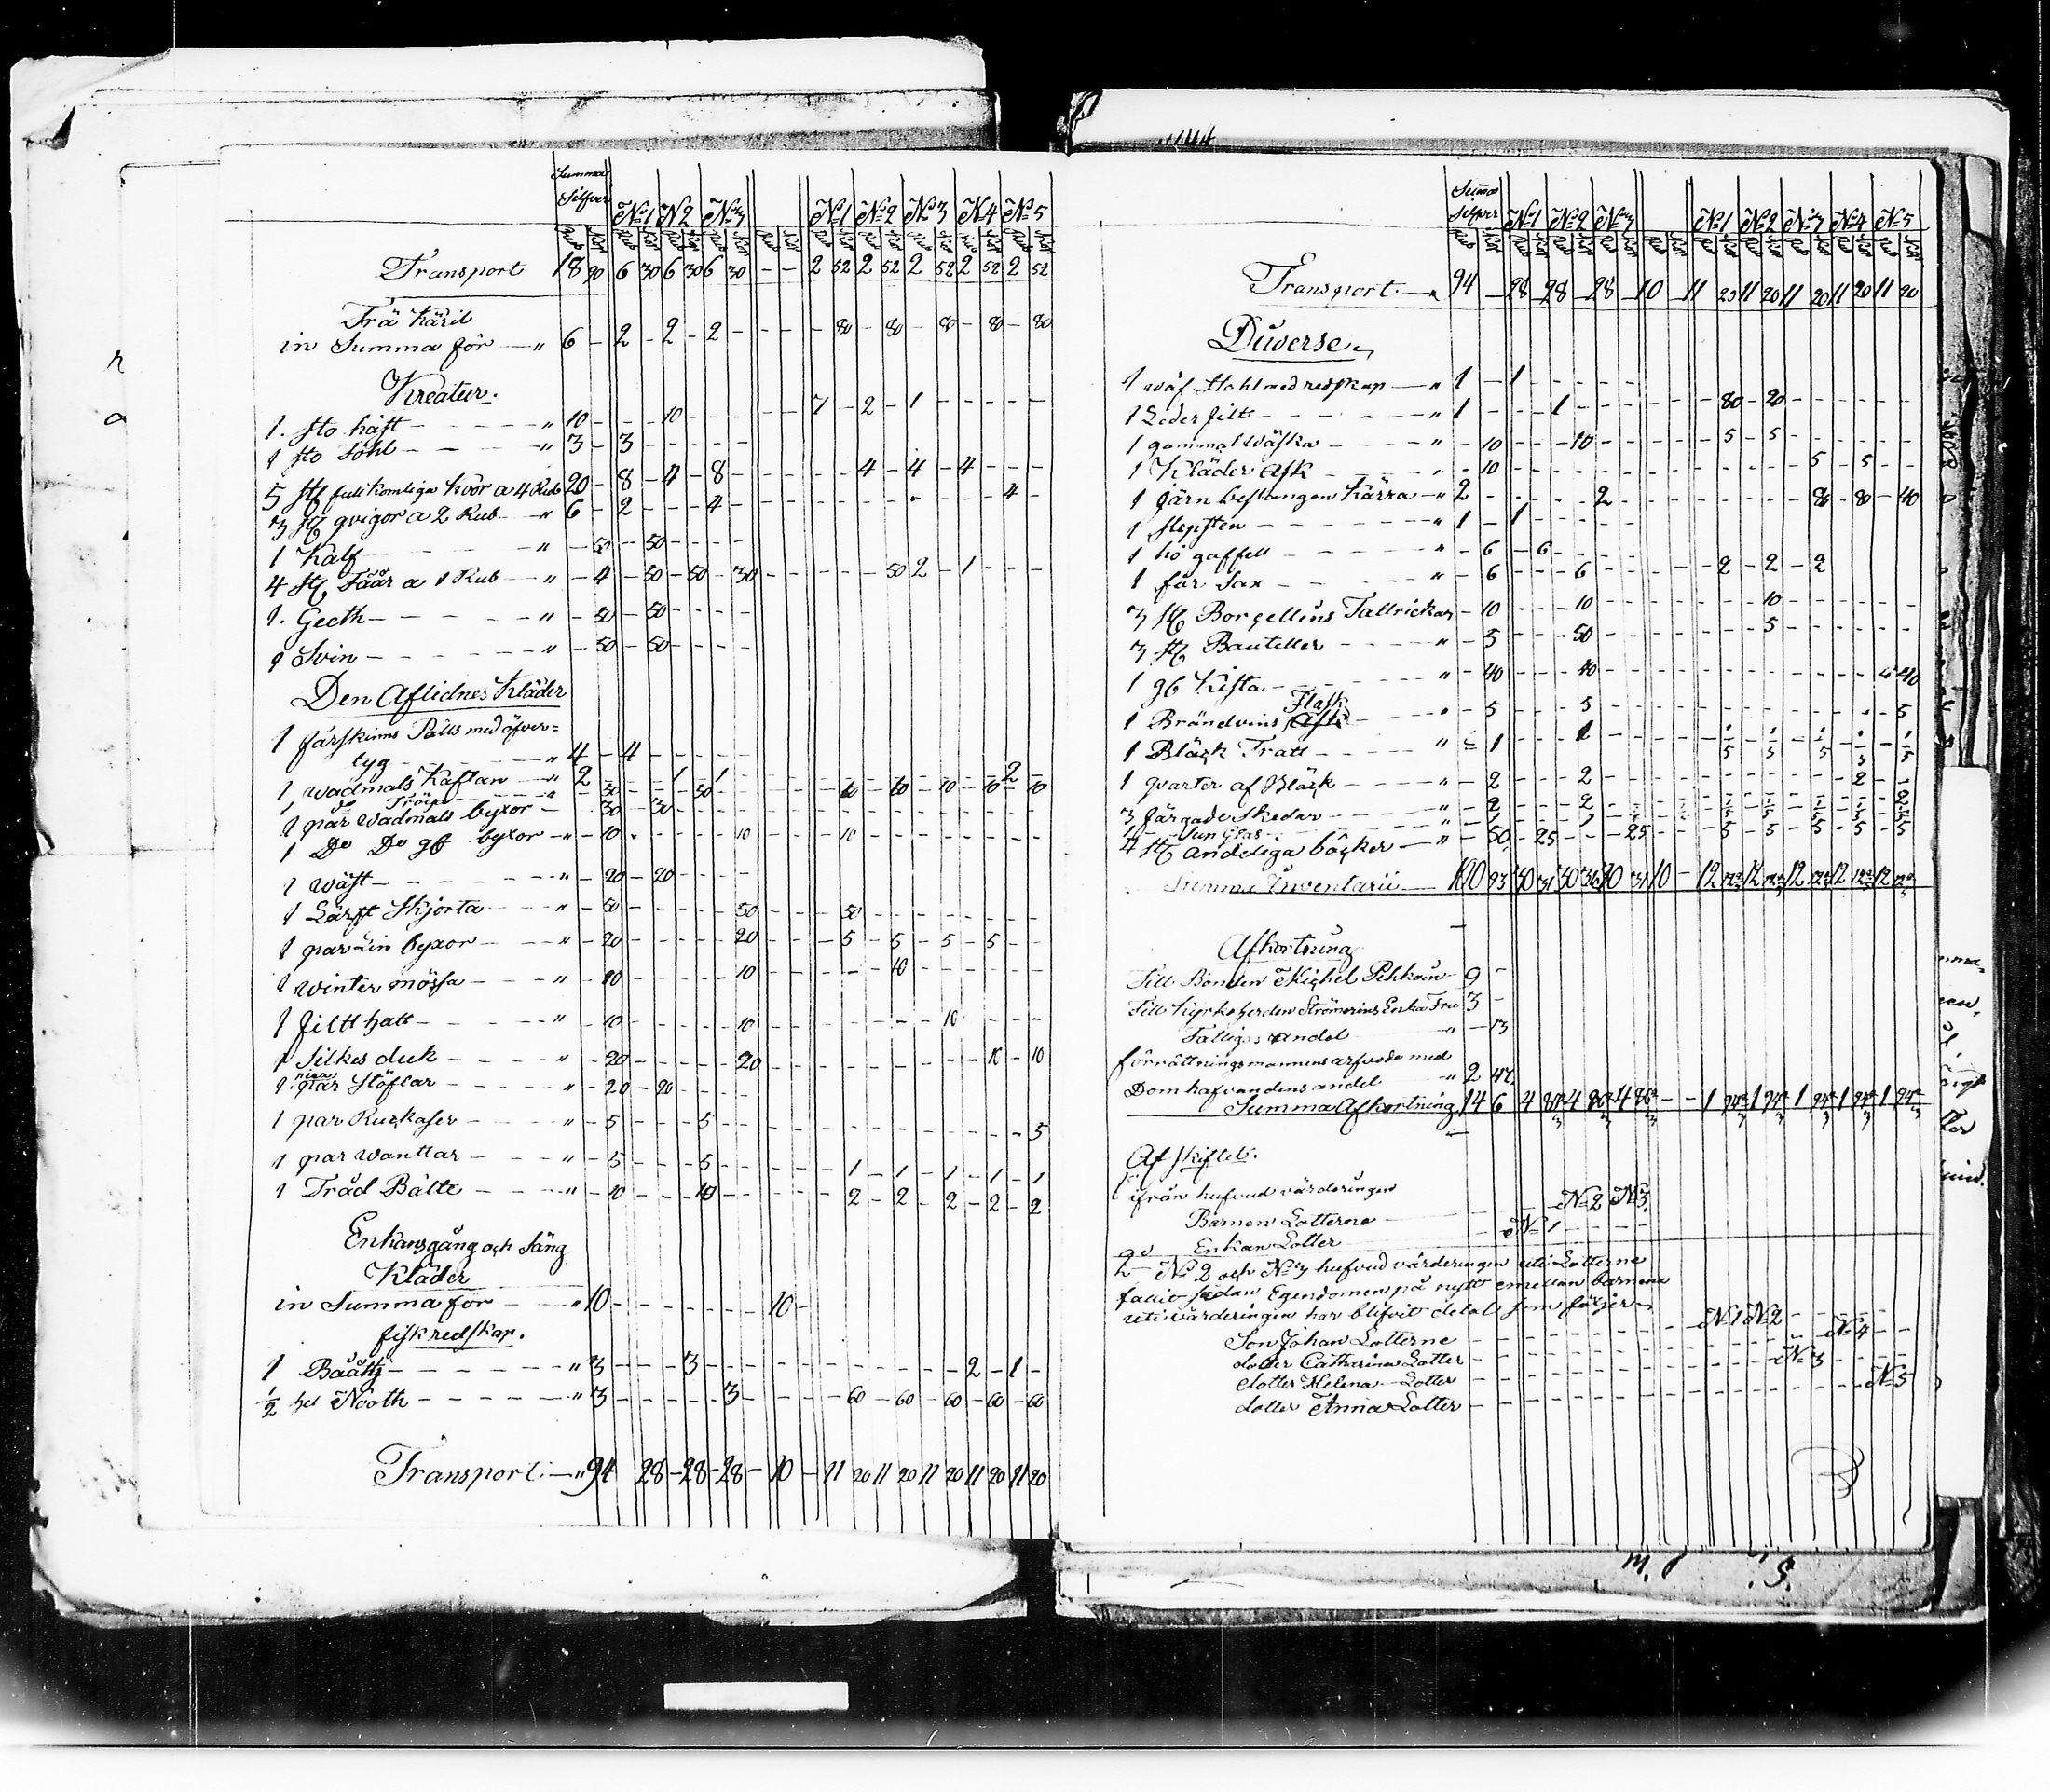 Summa
Silfver
№1 N2 №3 №1 №2 №3 №4 №5
Transport 18 90 6 30 6 30 6 30 - - 2 52 2 52 2 52 2 52 2 52
Trä Käril
in Summa för - " 6 - 2 - 2 - 2 - - - - 80 - 80 - 80 - 80 - 80
Kreatur.
1. sto häst - " 10 - - - 10 - - - - - 7 - 2 - 1 - - - - -
1 sto Föhl - " 3 - 3 - - - - -
5 st fullkomliga Koor a 4 Rub 20 - 8 - 4 - 8 - - - - - 4 - 4 - 4 - - -
3 st qvigor a 2 Rub - " 6 - 2 - - - 4 - - - - - 4 -
1 Kalf - " - 50 - 50 - - - -
4 st Fåår a 1 Rub - " - 4 - 50 - 50 - 30 - - - - - 50 2 - 1 - - -
1. Geeth - " - 50 - 50 - - - -
1 Svin - " - 50 - 50 - - - -
Den Aflidnes Kläder
1 fårskinns Pälls med öfver=
tyg - " 4 - 4 - - - - -
1 wadmals Kaftan - " 2 - - - 1 - 1 - - - - - 2 -
1 do Tröja - " - 30 - - - 50 - - - - - 60 - 60 - 10 - 10 - 10
1 par wadmals byxor - 30 - 30 - - - -
1 Do Do gb byxor - " - 10 - - - - - 10 - - - 10 - - - -
1 Wäst - " - 20 - 20 - - - -
1 Lärft Skjorta - " - 50 - - - - - 50 - - - 50 - - - -
1 par Lin byxor - " - 20 - - - - - 20 - - - 5 - 5 - 5 - 5 - -
1 winter mössa - " - 10 - - - - - 10 - - - - - 10 - - - -
1 filtt hatt - " - 10 - - - - - 10 - - - - - - - 10 - - - -
1 Silkes duk - " - 20 - - - - - 20 - - - - - - - - - 10 - 10
1. par Stöflar - " - 20 - 20 - - - -
1 par Ruckaser - " - 5 - - - 5 - - - - - - - - - - - - - 5
1 par wanttar - " - 5 - - - 5 - - - - - 1 - 1 - 1 - 1 - 1
1 Tråd Bälte - " - 10 - - - 10 - - - - - 2 - 2 - 2 - 2 - 2
Enkansgång och Säng
Kläder
in Summa för - " 10 - - - - - - - 10 -
fiskredskap.
1 Bååth - " 3 - - - 3 - - - - - - - - - - - 2 - 1 -
1/2 del Nooth - " 3 - - - - - 3 - - - - 60 - 60 - 60 - 60 - 60
Transport. - " 94 28 - 28 - 28 - 10 - 11 20 11 20 11 20 11 20 11 20
Summa
Silfver
№1 №2 №3 №1 №2 №3 №4 №5
Transport. - " 94 - 28 - 28 - 28 - 10 - 11 20 11 20 11 20 11 20 11 20
Diverse
1 wäf Stohl med redskap - " 1 - 1 - - - - -
1 Leder filt - " 1 - - - 1 - - - - - - 80 - 20 - - - - - -
1 gammal wäska - " - 10 - - - 10 - - - - - 5 - 5 - - - - - -
1 Kläder Ask - " - 10 - - - - - - - - - - - - - 5 - 5 - -
1 Järn beslangen Kärra - " 2 - - - - - 2 - - - - - - - - 80 - 80 - 40
1 slepsten - " 1 - 1 - - - - -
1 hö gaffell - " - 6 - 6 - - - -
1 får Sax - " - 6 - - - 6 - - - - - 2 - 2 - 2
3 st Borçellins Tallrickar - 10 - - - 10 - - - - - - - 10 - - - - - -
3 st Bauteller - " - 5 - - - 50 - - - - - - - 5 - - - - - -
1 gb Kista - " - 40 - - - 40 - - - - - - - - - - - - - 40
1 Brändvins Flask - " - 5 - - - 5 - - - - - - - - - - - - - 5
1 Bläck Tratt - " - 1 - - - 1
1 qvarter af Bläck - " - 2 - - - 2 - - - - - - - - - - - 2 - -
3 färgade Skedar - " - 2 - - - 2
1 Sup Glas -
4 st andeliga böcker - " - 50 - 25 - - - 25 - - - 5 - 5 - 5 - 5 - 5
Summa Inventarii - 100 93 30 31 30 36 30 31 10 - 12 12 12 12 12
Afkortning
Till Bonden Michel Pehkoin 9 -
Till Kyrkoherden Strömerins Enka Fru 3 -
Fattigas andel " - 13
förrättningsmannens arfvode med
Domhafvandens andel " 2 47
Summa Afkortning 14 6 4 4 4 - - 1 1 1 1 1
Af skiftet.
ifrån hufvud värderingen
Barnen Lotterne - №2 №3.
Enkan Lotter - №1
№ 2 och № 3 hufvud värderingen uti Lotterne
fallit sedan Egendomen på nytt emellan barnena
uti värderingen har blifvit delat som följer
Son Johan Lotterne - №1 №2
dotter Catharina Lotter - №4
dotter Helena Lotter - №3
dotter Anna Lotter - №5